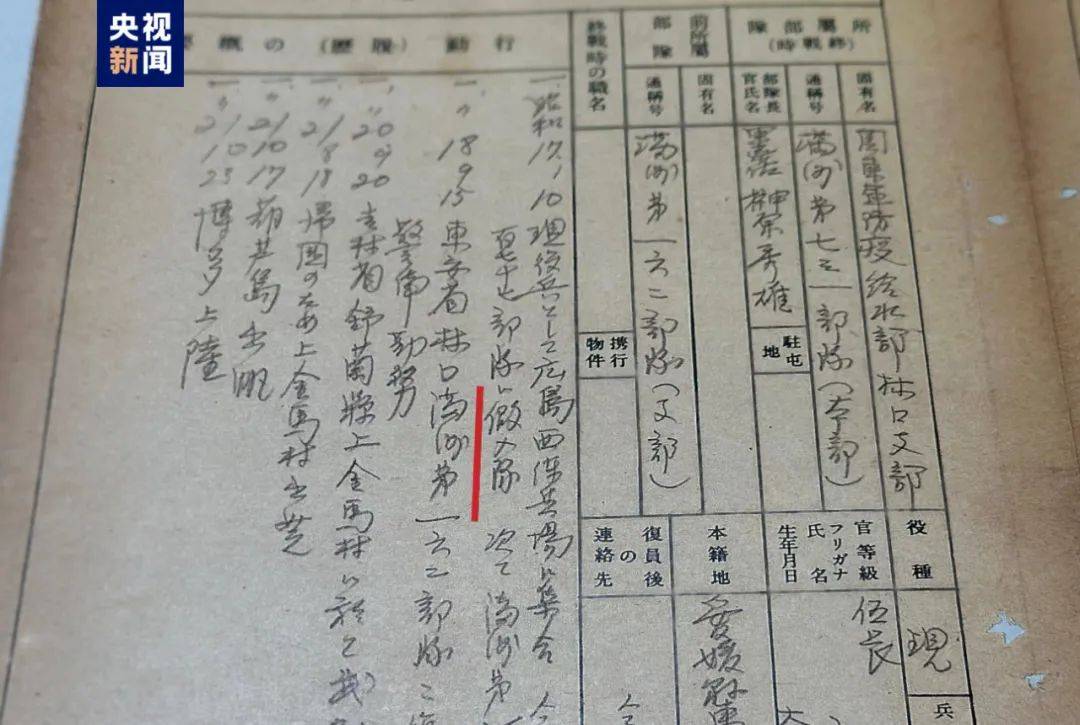 央视
新闻
所屬部隊
(終戰時)
固有名
関東軍防疫給水部林口支部
通稱号
満洲第七三一部隊(本部)
部隊長官氏名
榊原秀雄
駐屯地
前所屬部隊
固有名
通稱号
満洲第一六二部隊(支部)
終戰時の職名
携行物件
役種
現
兵
官等級
伍長
フリガナ
氏名
生年月日
本籍地
愛媛県
復員後の連絡先
行動(履歴)の概要
一、昭和17、10 現役兵として広島西練兵場に集合
部隊に仮入隊 次で満洲第
一、〃 18 9 15 東安省林口満洲第一六二部隊
警備勤務
一、〃 20 9 20 吉林省舒蘭縣上金馬村に於て
一、〃 21 8 18 帰国のため上金馬村出発
一、〃 21 10 17 葫芦島出帆
一、〃 21 10 23 博多上陸